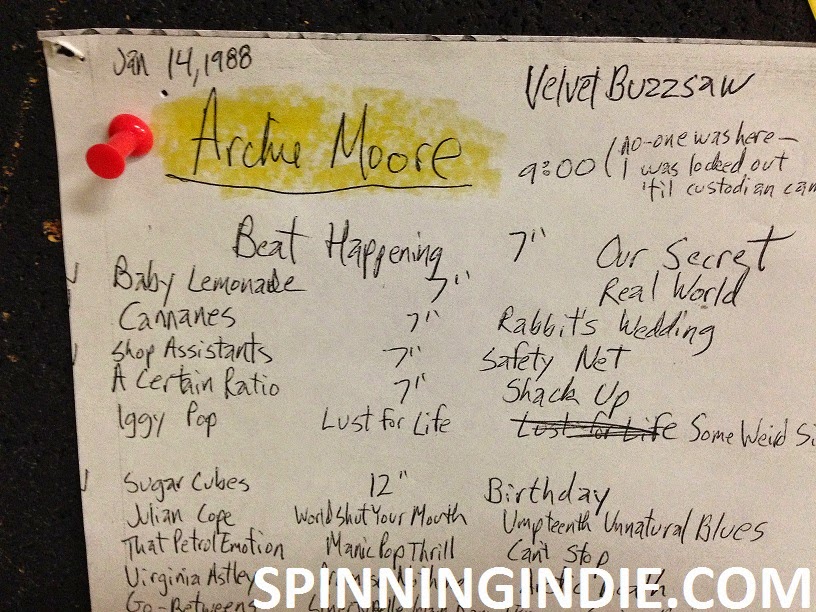 Jan 14, 1988
Velvet Buzzsaw
Archie Moore
9:00 (no-one was here –
I was locked out
'til custodian cam
Beat Happening 7" Our Secret
Baby Lemonade 7" Real World
Cannanes 7" Rabbit's Wedding
Shop Assistants 7" Safety Net
A Certain Ratio 7" Shack Up
Iggy Pop Lust for Life Lust for Life Some Weird Si
Sugar Cubes 12" Birthday
Julian Cope World Shut Your Mouth Umpteenth Unnatural Blues
That Petrol Emotion Manic Pop Thrill Can't Stop
Virginia Astley
Go-Betweens
SPINNINGINDIE.COM